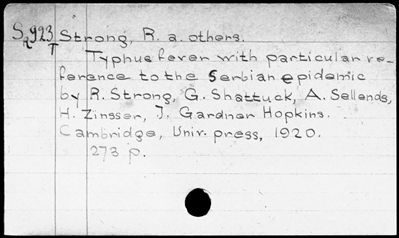 S2923 Strong, R. a. others.
T
Typhus fever with particular re-
ference to the Serbian epidemic
by R. Strong, G. Shattuck, A. Sellends,
H. Zinsser, J. Gardner Hopkins.
Cambridge, Univ. press, 1920.
273 p.